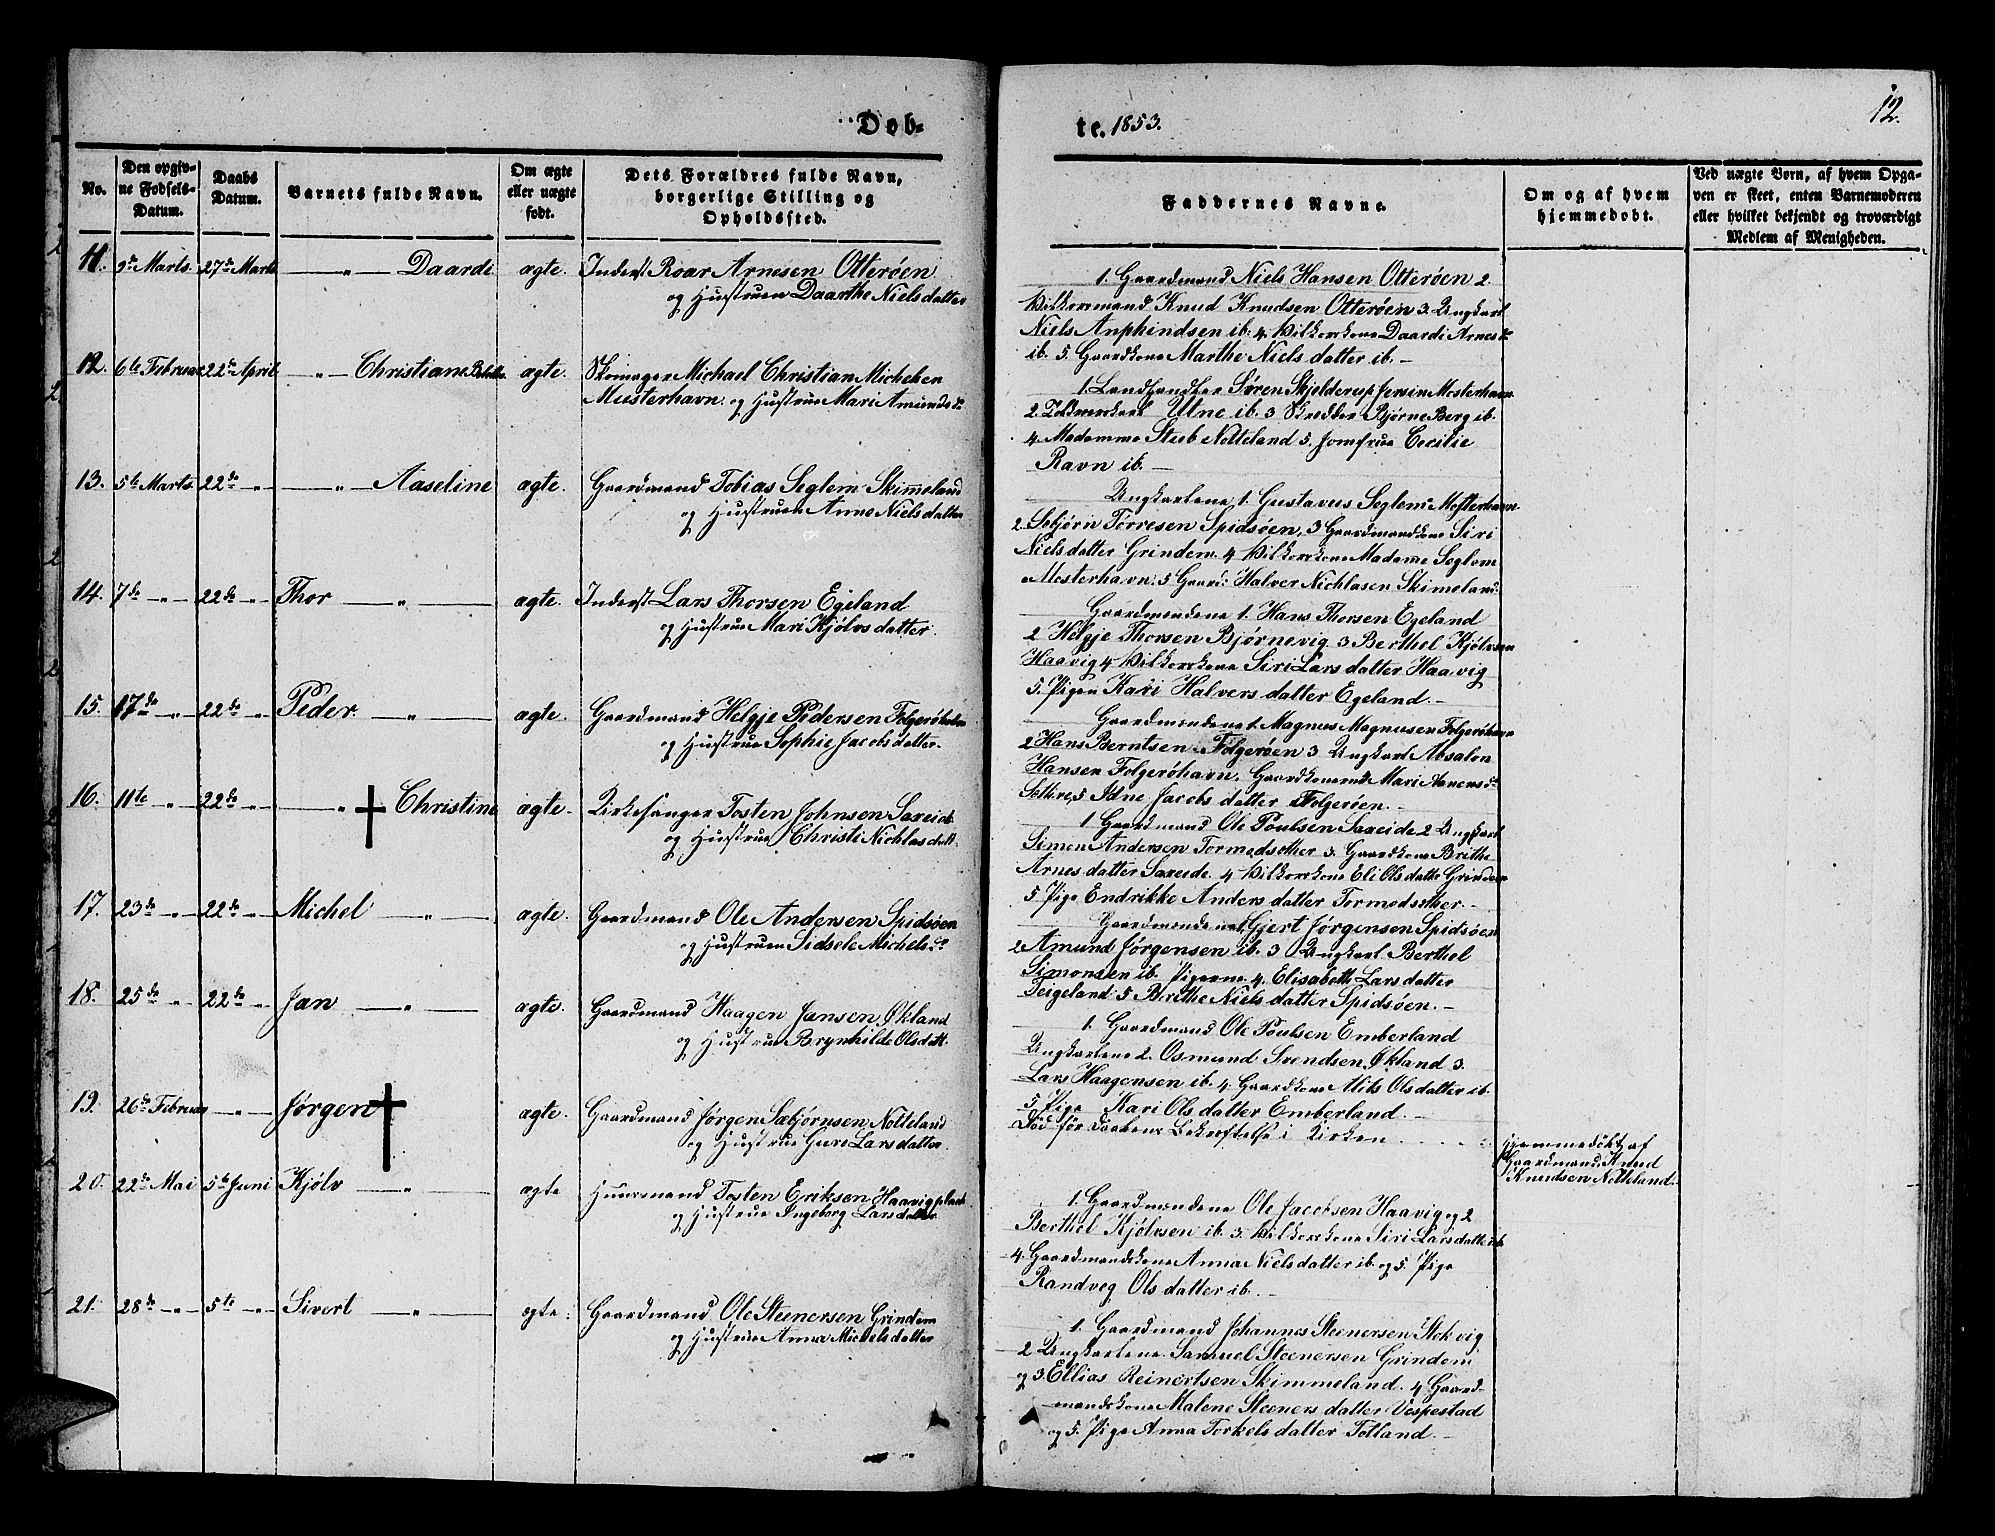 Døb-
te. 1853.
12.
No.
Den opgiv-
ne Fødsels-
Datum.
Daabs
Datum.
Barnets fulde Navn.
Om ægte
eller uægte
født.
Dets Forældres fulde Navn,
borgerlige Stilling og
Opholdssted.
Faddernes Navne.
Om og af hvem
hjemmedøbt.
Ved uægte Børn, af hvem Opga-
ven er skeet, enten Barnemoderen
eller hvilket bekjendt og troværdigt
Medlem af Menigheden.
11. 9de Marts. 27de Marts — „ — Daardi ægte. Inderst Roar Arnesen Otterøen
og Hustruen Daarthe Nielsdatter
1. Gaardmand Niels Hansen Otterøen 2
Vilkorsmand Knud Knudsen Otterøen 3. Ungkarl
Niels Anphindsen ib. 4. Vilkorskone Daardi Arnesdr
ib. 5. Gaardkone Marthe Nielsdatter ib. —
12. 6te Februar 22de April — „ — Christiane ægte. Skomager Michael Christian Michelsen
Musterhavn og Hustrue Mari Amundsdr
1. Landhandler Søren Skjelderup Jensen Mosterhavn
2 Ulne ib. 3 Skredder Bjørne Berg ib.
4. Madamme Steeb Notteland 5. Jomfrue Cecilie
Ravn ib. —
13. 5te Marts. 22de „ — „ — Aaseline ægte. Gaardmand Tobias Seglem Skimmeland
og Hustruen Anne Nielsdatter
Ungkarlene 1. Gustavus Seglem Mosterhavn
2. Sebjörn Torresen Spidsøen, 3 Gaardmandkone Siri
Nielsdatter Grindem. 4 Vilkorskone Madame Seglem
Mosterhavn. 5 Gaard: Halver Nichlasen Skimeland.
14. 7de — „ — 22de „ Thor — „ — ægte. Inderst Lars Thorsen Egeland
og Hustrue Mari Kjølvsdatter.
Gaardmendene 1. Hans Thorsen Egeland
2 Helgje Thorsen Bjørnevig 3 Berthel Kjölvsen
Haavig 4 Vilkorskone Siri Larsdatter Haavig
5. Pigen Kari Halversdatter Egeland. —
15. 17de „ 22de „ Peder. — „ — ægte. Gaardmand Helgje Pedersen Folgerøhavn
og Hustrue Sophie Jacobsdatter.
Gaardmendene 1. Magnus Magnusen Folgerøhavn
2 Hans Berntsen Folgerøen 3 Ungkarl Absalon
Hansen Folgerøhavn. Gaardkonerne Mari Aanensdr
5 Idne Jacobsdatter Folgerøen. —
16. 11te „ 22de „ — „ — Christine ægte. Kirkesanger Tosten Johnsen Sareide
og Hustrue Christi Nichlasdatt.
1 Gaardmand Ole Poulsen Sareide 2 Ungkarl
Simen Andersen Tormodsether 3. Gaardkone Brithe
Arnesdatter Sareide. 4 Vilkorskone Eli Olsdatte Grindem
5 Pige Endrikke Andersdatter Tormodsether. —
17. 23de „ 22de „ Michel — „ — ægte. Gaardmand Ole Andersen Spidsøen
og Hustruen Sidsele Michelsdr
Gaardmendene 1. Gjert Jörgensen Spidsøen
2 Amund Jörgensen ib. 3 Ungkarl Berthel
Simonsen ib. Pigerne 4. Elisabeth Larsdatter
Teigeland 5 Brithe Nielsdatter Spidsøen. —
18. 25de „ 22de „ Jan — „ — ægte. Gaardmand Haagen Jansen Økland
og Hustrue Brynhilde Olsdatt.
1. Gaardmand Ole Poulsen Emberland
Ungkarlene 2. Osmund Svendsen Økland 3.
Lars Haagensen ib. 4. Gaardkone Olsdatter ib.
5 Pige Kari Olsdatter Emberland. —
19. 26de Februar — „ — Jørgen ægte. Gaardmand Jörgen Sæbjörnsen Notteland
og Hustrue Guri Larsdatter.
Död för Daabens Bekræftelse i Kirken
Hjemmedöbt af
Gaardmand Knud
Knudsen Notteland.
20. 22de Mai 5te Juni Kjölv — „ — ægte Huusmand Tosten Eriksen Haavigplads
og Hustrue Ingeborg Larsdatter
1. Gaardmendene Ole Jacobsen Haavig og 2
Berthel Kjölvsen ib. 3. Vilkorskone Siri Larsdatte ib.
4. Gaardmandskone Anna Nielsdatter ib. og 5. Pige
Randveg Olsdatter ib. —
21. 28de „ 5te „ Sivert — „ — ægte. Gaardmand Ole Steenersen Grindem
og Hustrue Anna Michelsdatter
1. Gaardmand Johannes Steenersen Stokvig
2 Ungkarlene Samuel Steenersen Grindem
og 3. Ellias Reinertsen Skimmeland. 4 Gaard-
mandskone Malene Steenersdatter Vespestad
og 5. Pige Anna Torkelsdatter Totland. —